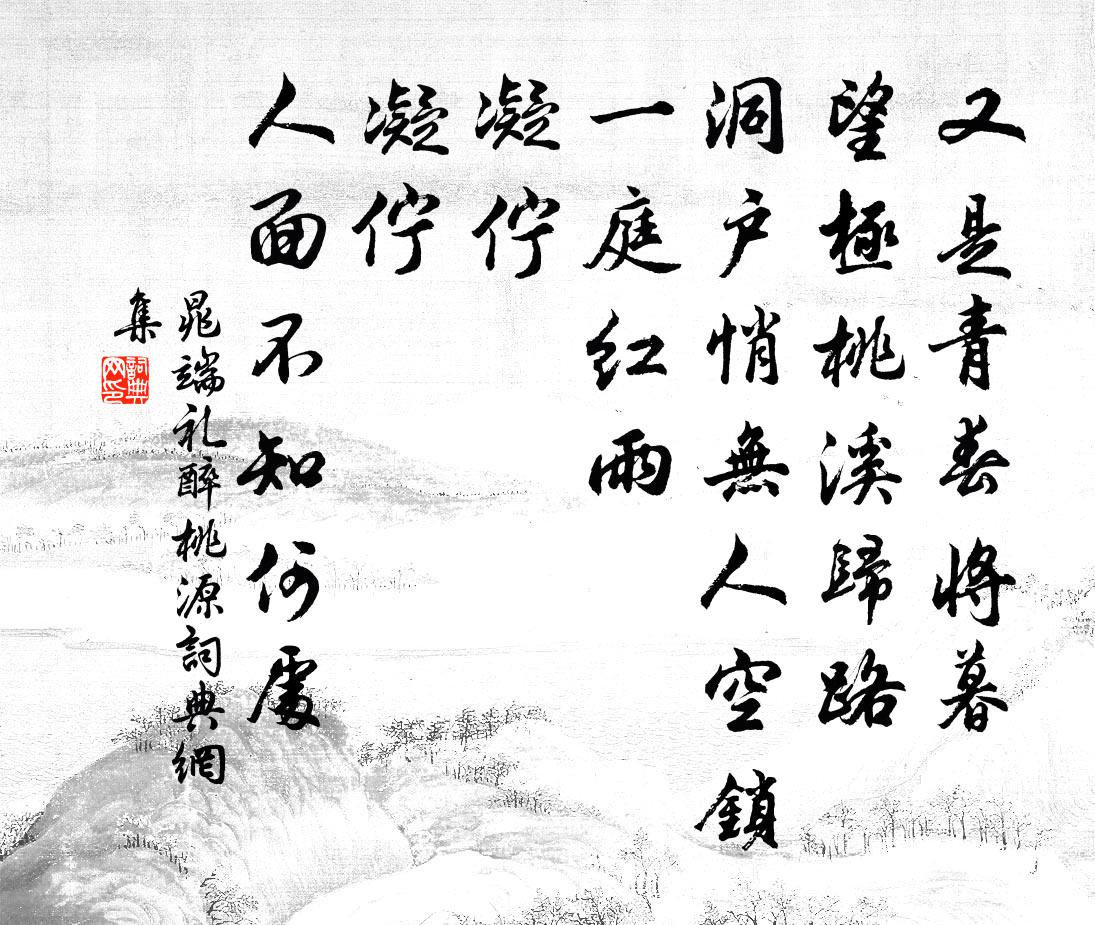 又是青春將暮
望極桃溪歸路
洞户悄無人空鎖
一庭红雨
凝佇
凝佇
人面不知何處
晁端礼醉桃源詞典網
集
詞典
网印